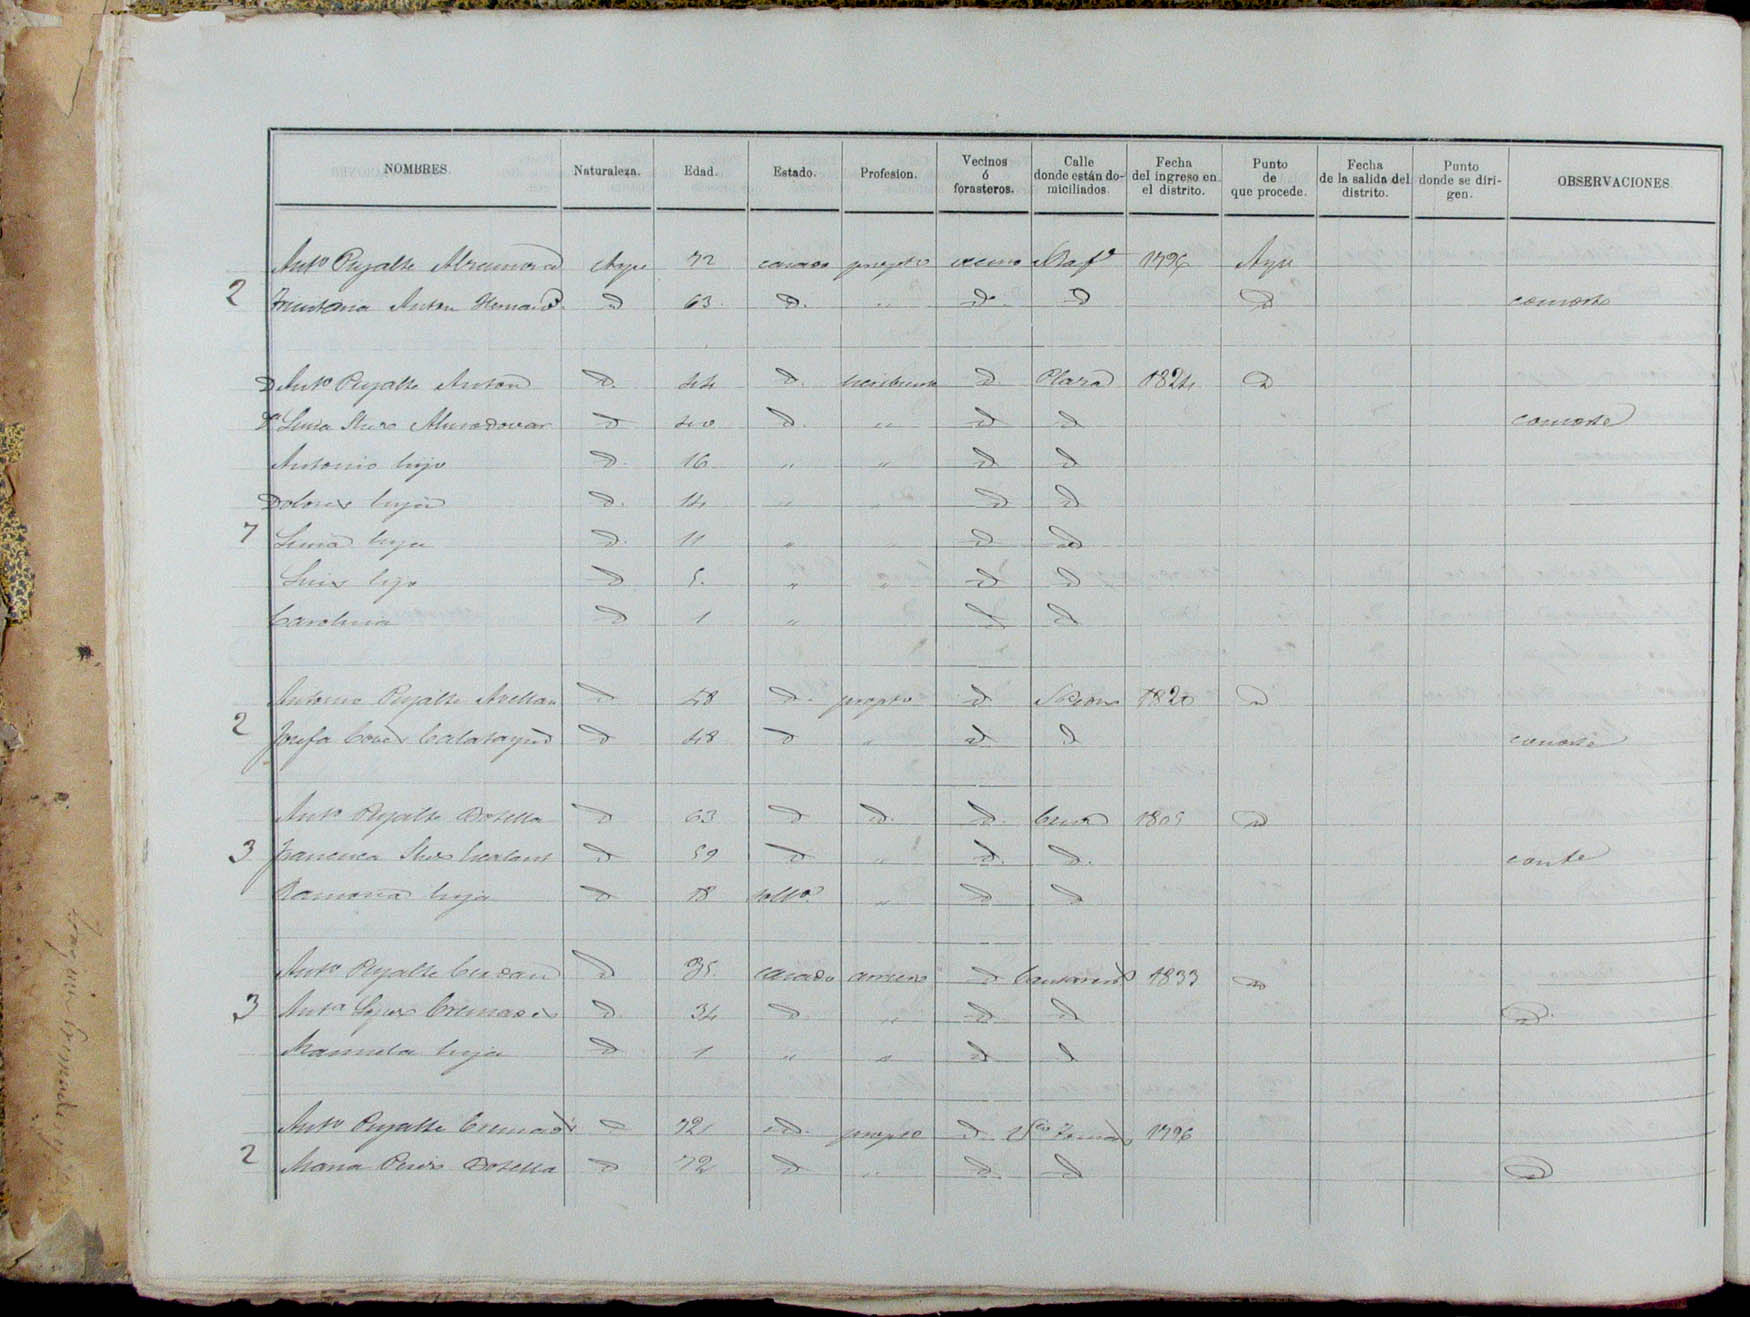 NOMBRES. Naturaleza. Edad. Estado. Profesion. Vecinos ó forasteros. Calle donde están domiciliados. Fecha del ingreso en el distrito. Punto de que procede. Fecha de la salida del distrito. Punto donde se dirigen. OBSERVACIONES.
Anto Pujalte Aspe 72 casado propto vecino 1796 Aspe
2 Anton D 63 D. " D D D consorte
D Anto Pujalte Anton D. 44 D. D. Plaza 1824 D
Da Luisa Almodovar D 40 D. " D D consorte
Antonio hijo D. 16 " " D D
Dolores hija D. 14 " " D D
7 Luisa hija D. 11 " " D D
Luis hijo D 5. " " D D
Carolina D 1 " D D
Antonio Pujalte Avellan D 48 D. propto D 1820 D
2 Josefa Calatayud D 48 D " D D consorte
Anto Pujalte Botella D 63 D D. D. 1805 D
3 Francisca D 59 D " D. D. conte
Ramona hija D 18 solta " D. D
Anto Pujalte Cerdan D 35. casado arriero D 1833 D
3 Anta Lopez Cremades D. 34 D " D D D.
Manuela hija D 1 " " D D
Anto Pujalte Cremades D 72 D. D Sto Tomas 1796
2 Maria Perez Botella D 72 D " D. D D